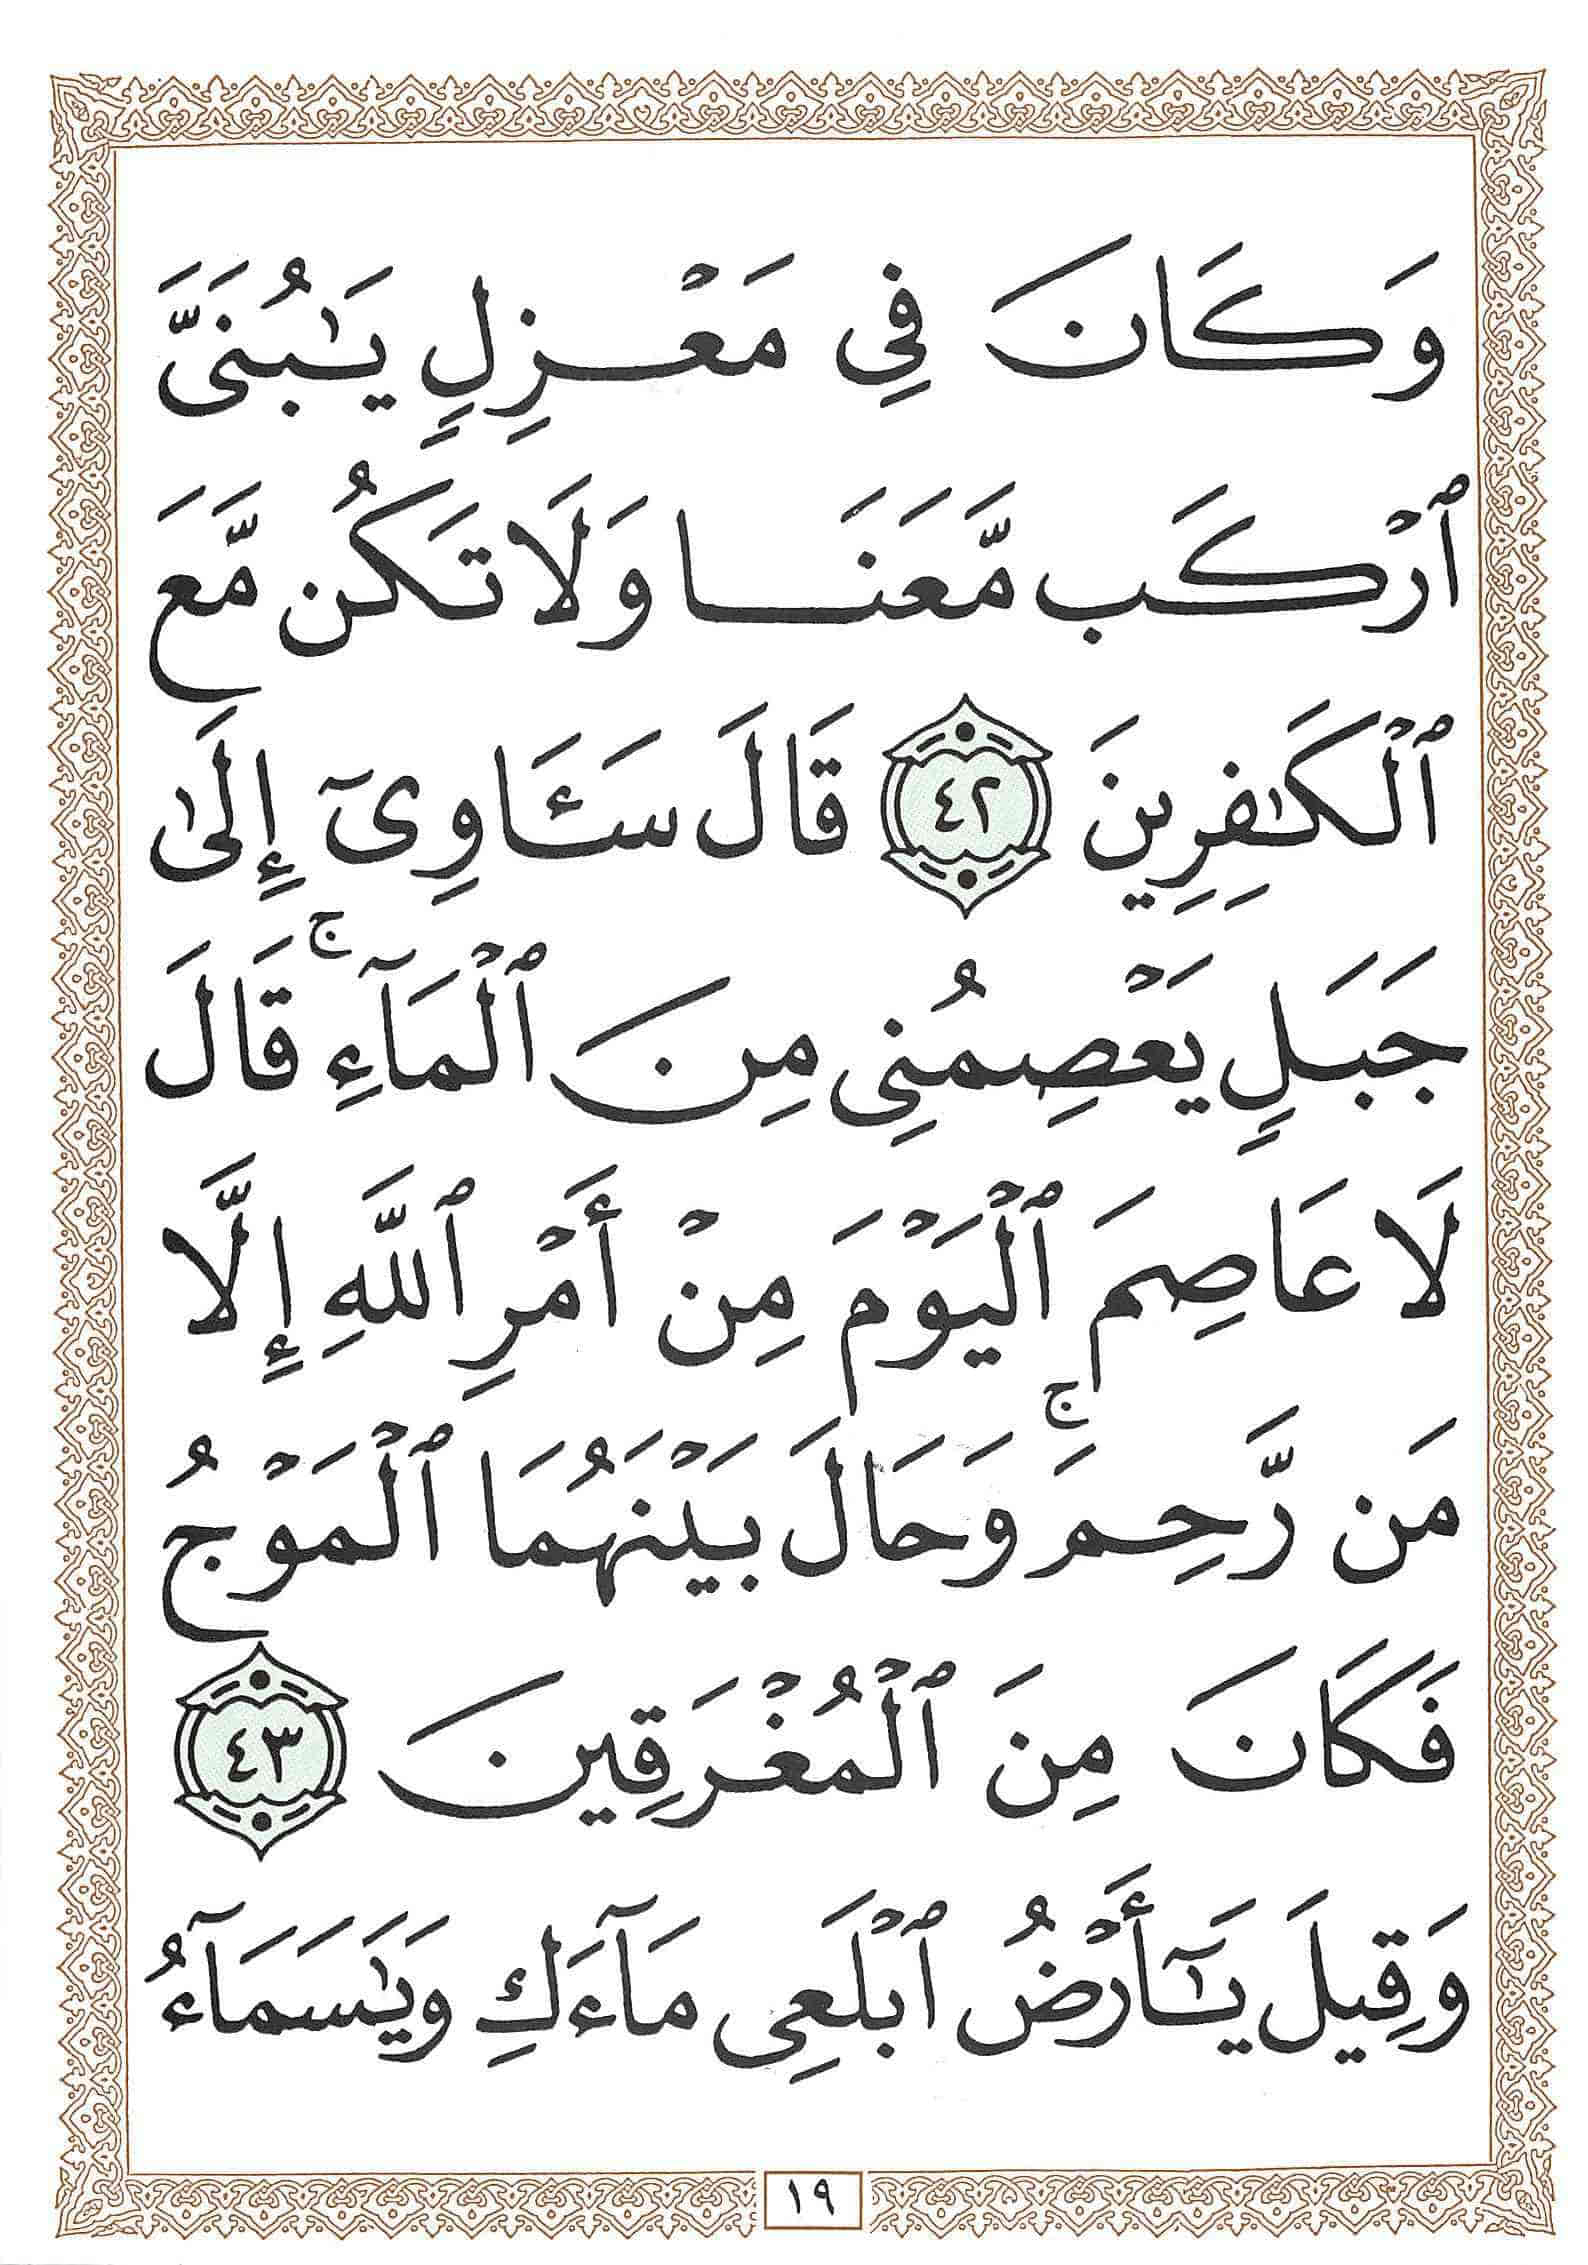 وَكَانَ فِي مَعْزِلٍ يَٰبُنَيَّ
ٱرْكَب مَّعَنَا وَلَا تَكُن مَّعَ
ٱلْكَٰفِرِينَ ٤٢ قَالَ سَـَٔاوِىٓ إِلَىٰ
جَبَلٍ يَعْصِمُنِى مِنَ ٱلْمَآءِ ۚ قَالَ
لَا عَاصِمَ ٱلْيَوْمَ مِنْ أَمْرِ ٱللَّهِ إِلَّا
مَن رَّحِمَ ۚ وَحَالَ بَيْنَهُمَا ٱلْمَوْجُ
فَكَانَ مِنَ ٱلْمُغْرَقِينَ ٤٣
وَقِيلَ يَٰٓأَرْضُ ٱبْلَعِى مَآءَكِ وَيَٰسَمَآءُ
١٩